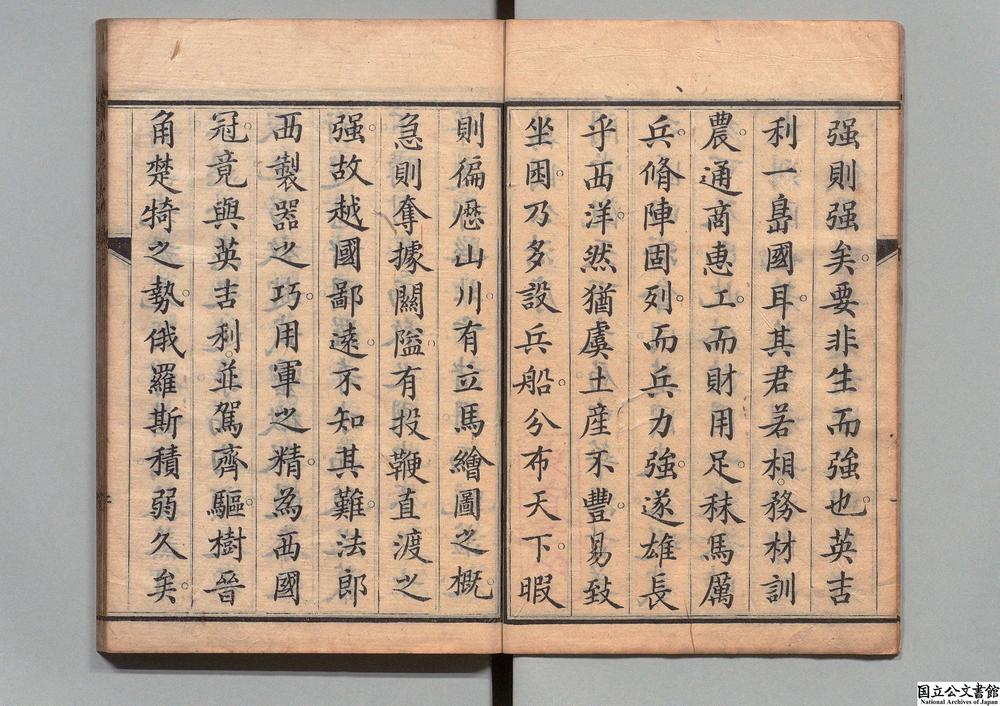 强則强矣。要非生而强也。英吉
利一島國耳。其君若相。務材訓
農。通商惠工。而財用足。秣馬厲
兵。脩陣固列。而兵力强。遂雄長
乎西洋。然猶虞土産不豐。易致
坐困。乃多設兵船。分布天下。暇
則徧歷山川。有立馬繪圖之概。
急則奪據關隘。有投鞭直渡之
强。故越國鄙遠。不知其難。法郎
西製器之巧。用軍之精。為西國
冠。竟與英吉利。並駕齊驅。樹晉
角楚犄之勢。俄羅斯積弱久矣。
国立公文書館
National Archives of Japan